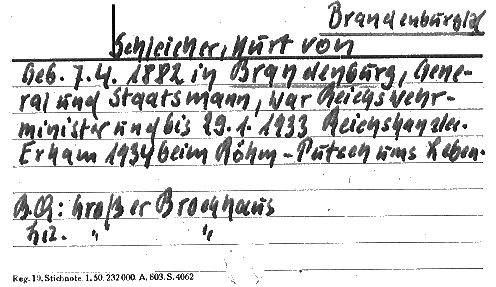 Brandenburg
Schleicher, Kurt von
Geb. 7.4. 1882 in Brandenburg, Gene-
ral und Staatsmann, war Reichswehr-
minister und bis 29.1.1933 Reichskanzler.
Er kam 1934 beim Röhm-Putsch ums Leben.
B.Q: Großer Brockhaus
" "
Reg. 19. Stichnote. 1. 50. 232 000. A. 603. S. 4062